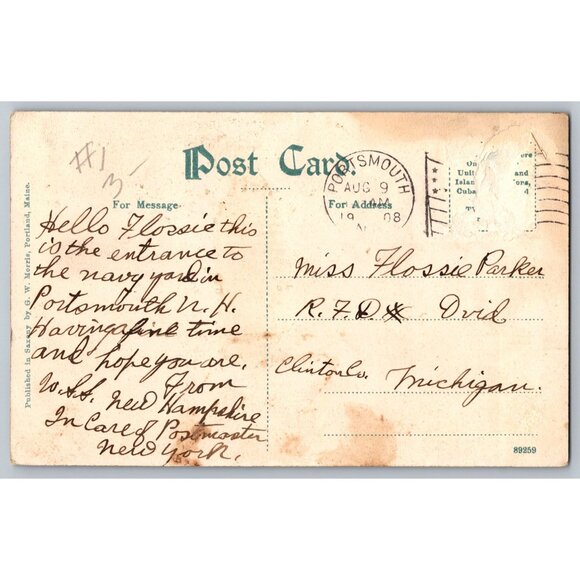 #1
3-
Post Card.
For Message
For Address
PORTSMOUTH
AUG 9
AM
1908
N.
Hello Flossie this
is the entrance to
the navy yard in
Portsmouth N.H.
Having a fine time
and hope you are.
From
U.S.S. New Hampshire
In Care of Postmaster
New York.
Miss Flossie Parker
R.F.D. Ovid
Clinton Co. Michigan.
Published in Saxony by G. W. Morris, Portland, Maine.
89259